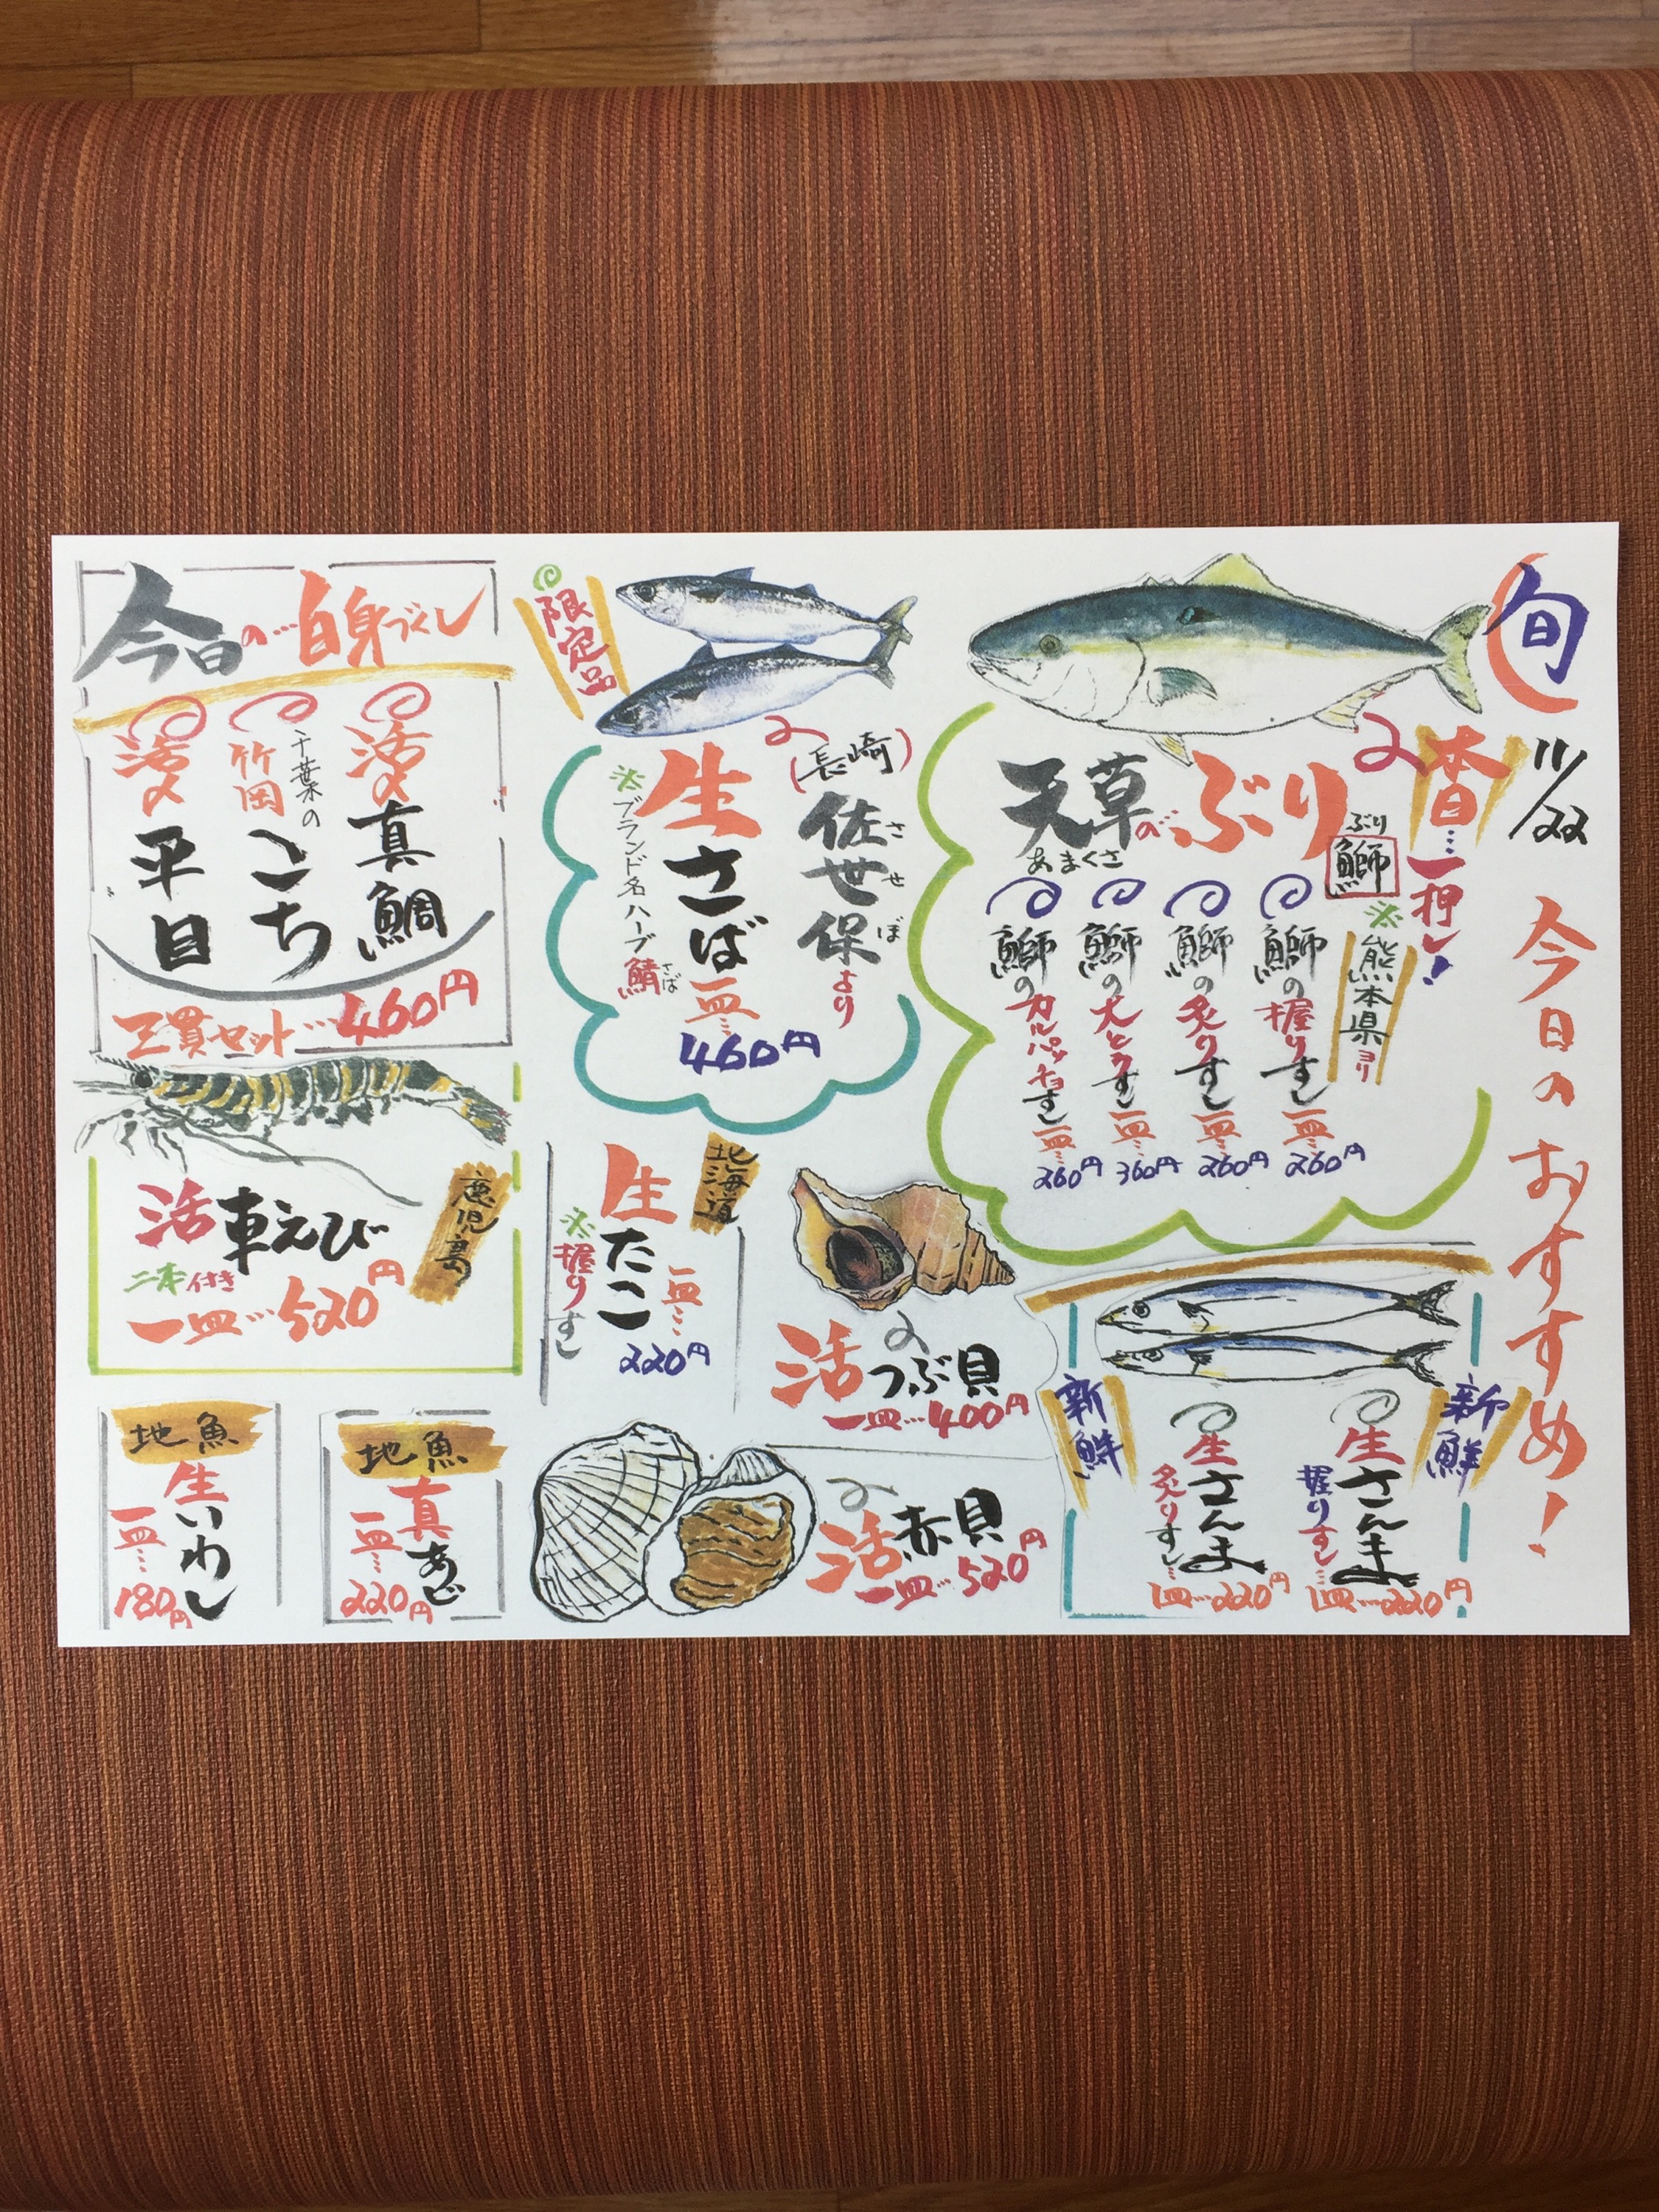 旬
11/22
今日のおすすめ!
本日…一押し!
天草のぶり
あまくさ
ぶり
鰤
※熊本県ヨリ
鰤の握りすし
一皿…
260円
鰤の炙りすし
一皿…
260円
鰤の大とろすし
一皿…
360円
鰤のカルパッチョすし
一皿…
260円
限定品
(長崎)
佐世保より
させぼ
生さば
一皿…
460円
※ブランド名ハーブ鯖
さば
今日の…白身づくし
活〆真鯛
千葉の
竹岡こち
活〆平目
三貫セット…460円
鹿児島
活車えび
二本付き
一皿…520円
北海道
生たこ
※握りすし
一皿…
220円
活つぶ貝
一皿…400円
活赤貝
一皿…520円
新鮮
生さんま
握りすし…
一皿…220円
生さんま
炙りすし…
一皿…220円
新鮮
地魚
真あじ
一皿…
220円
地魚
生いわし
一皿…
180円